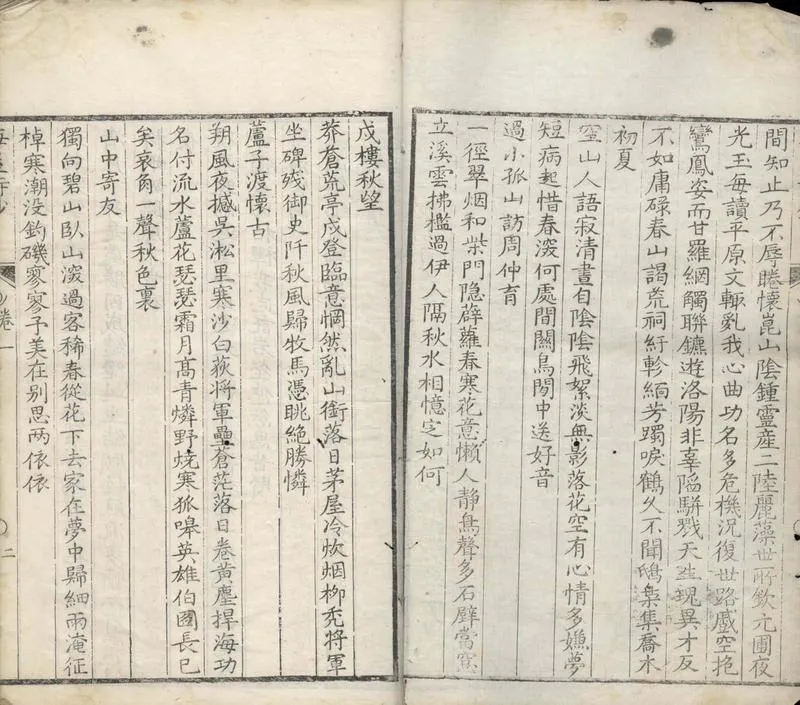 間知止乃不辱睠懷崑山陰鍾靈産二陸麗藻世所欽元圃夜
光玉每讀平原文輙亂我心曲功名多危機況復世路戲空抱
鸞鳳姿而甘羅網觸聯鑣遊洛陽非辜陷駢戮天生瑰異才反
不如庸碌春山謁荒祠紆軫緬芳躅唳鶴久不聞鴟梟集喬木
初夏
空山人語寂清晝自陰陰飛絮淡無影落花空有心情多嫌夢
短病起惜春深何處間關鳥閒中送好音
過小孤山訪周仲育
一徑翠烟和柴門隐薜蘿春寒花意懶人静鳥聲多石壁當窓
立溪雲拂檻過伊人隔秋水相憶定如何
戍樓秋望
莽蒼荒亭戍登臨意惘然亂山銜落日茅屋冷炊烟栁秃將軍
坐碑殘御史阡秋風歸牧馬憑眺絶勝憐
蘆子渡懷古
朔風夜撼吳淞里寒沙白荻將軍壘蒼茫落日卷黄塵捍海功
名付流水蘆花瑟瑟霜月髙青燐野燒寒狐嗥英雄伯圖長已
矣哀角一聲秋色裏
山中寄友
獨向碧山臥山深過客稀春從花下去家在夢中歸細雨淹征
棹寒潮没釣磯寥寥予美在别思两依依
卷一
二